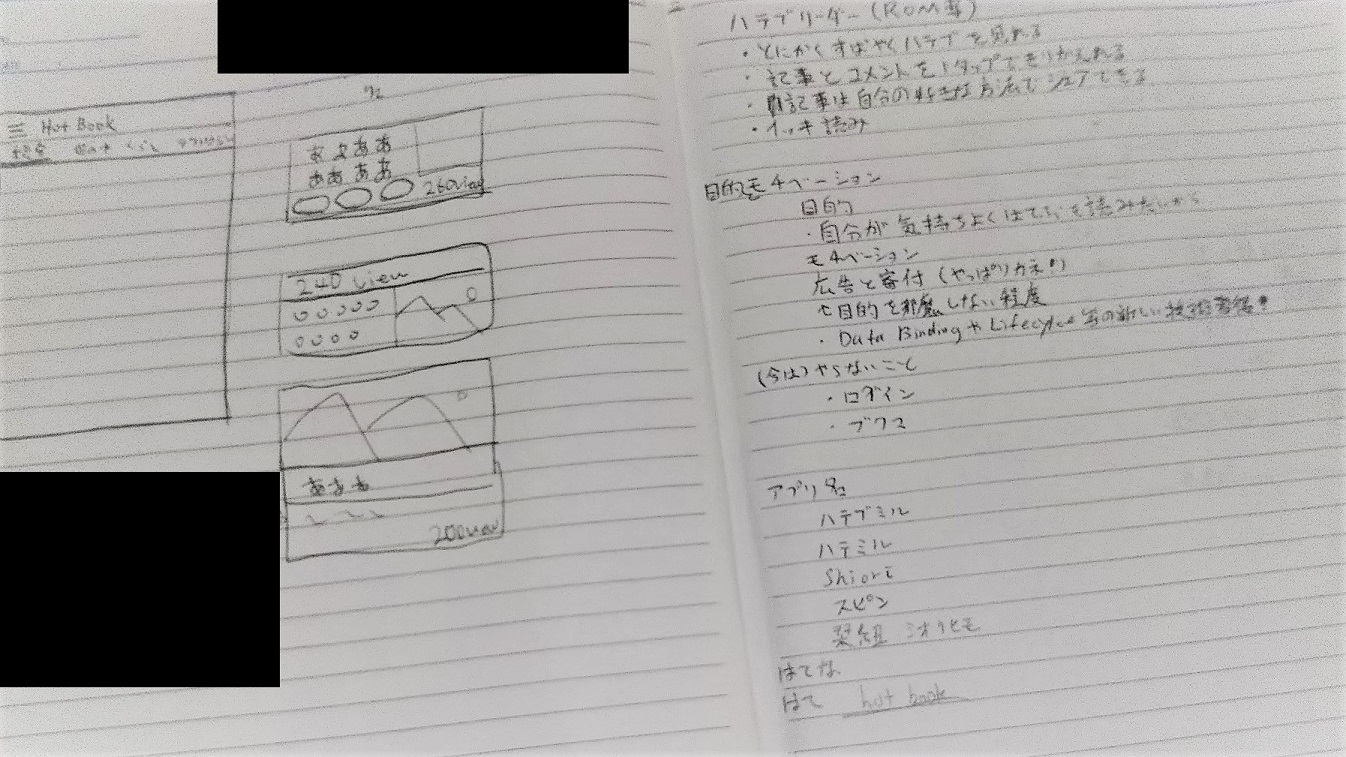 Hot Book
ああああ
ああああ
260view
240 view
○○○○○
○○○○
あああ
200view
ハテブリーダー(ROM専)
・とにかくすばやくハテブを見れる
・記事とコメントを1タップできりかえれる
・記事は自分の好きな方法でシェアできる
・イッキ読み
目的とモチベーション
目的
・自分が気持ちよくはてぶを読みたいから
モチベーション
広告と寄付(やっぱりカネ!)
目的を邪魔しない程度
・Data BindingやLifecycle等の新しい技術
(今は)やらないこと
・ログイン
・ブクマ
アプリ名
ハテブミル
ハテミル
Shiori
スピン
栞紐 シオリヒモ
はてな
はて hot book